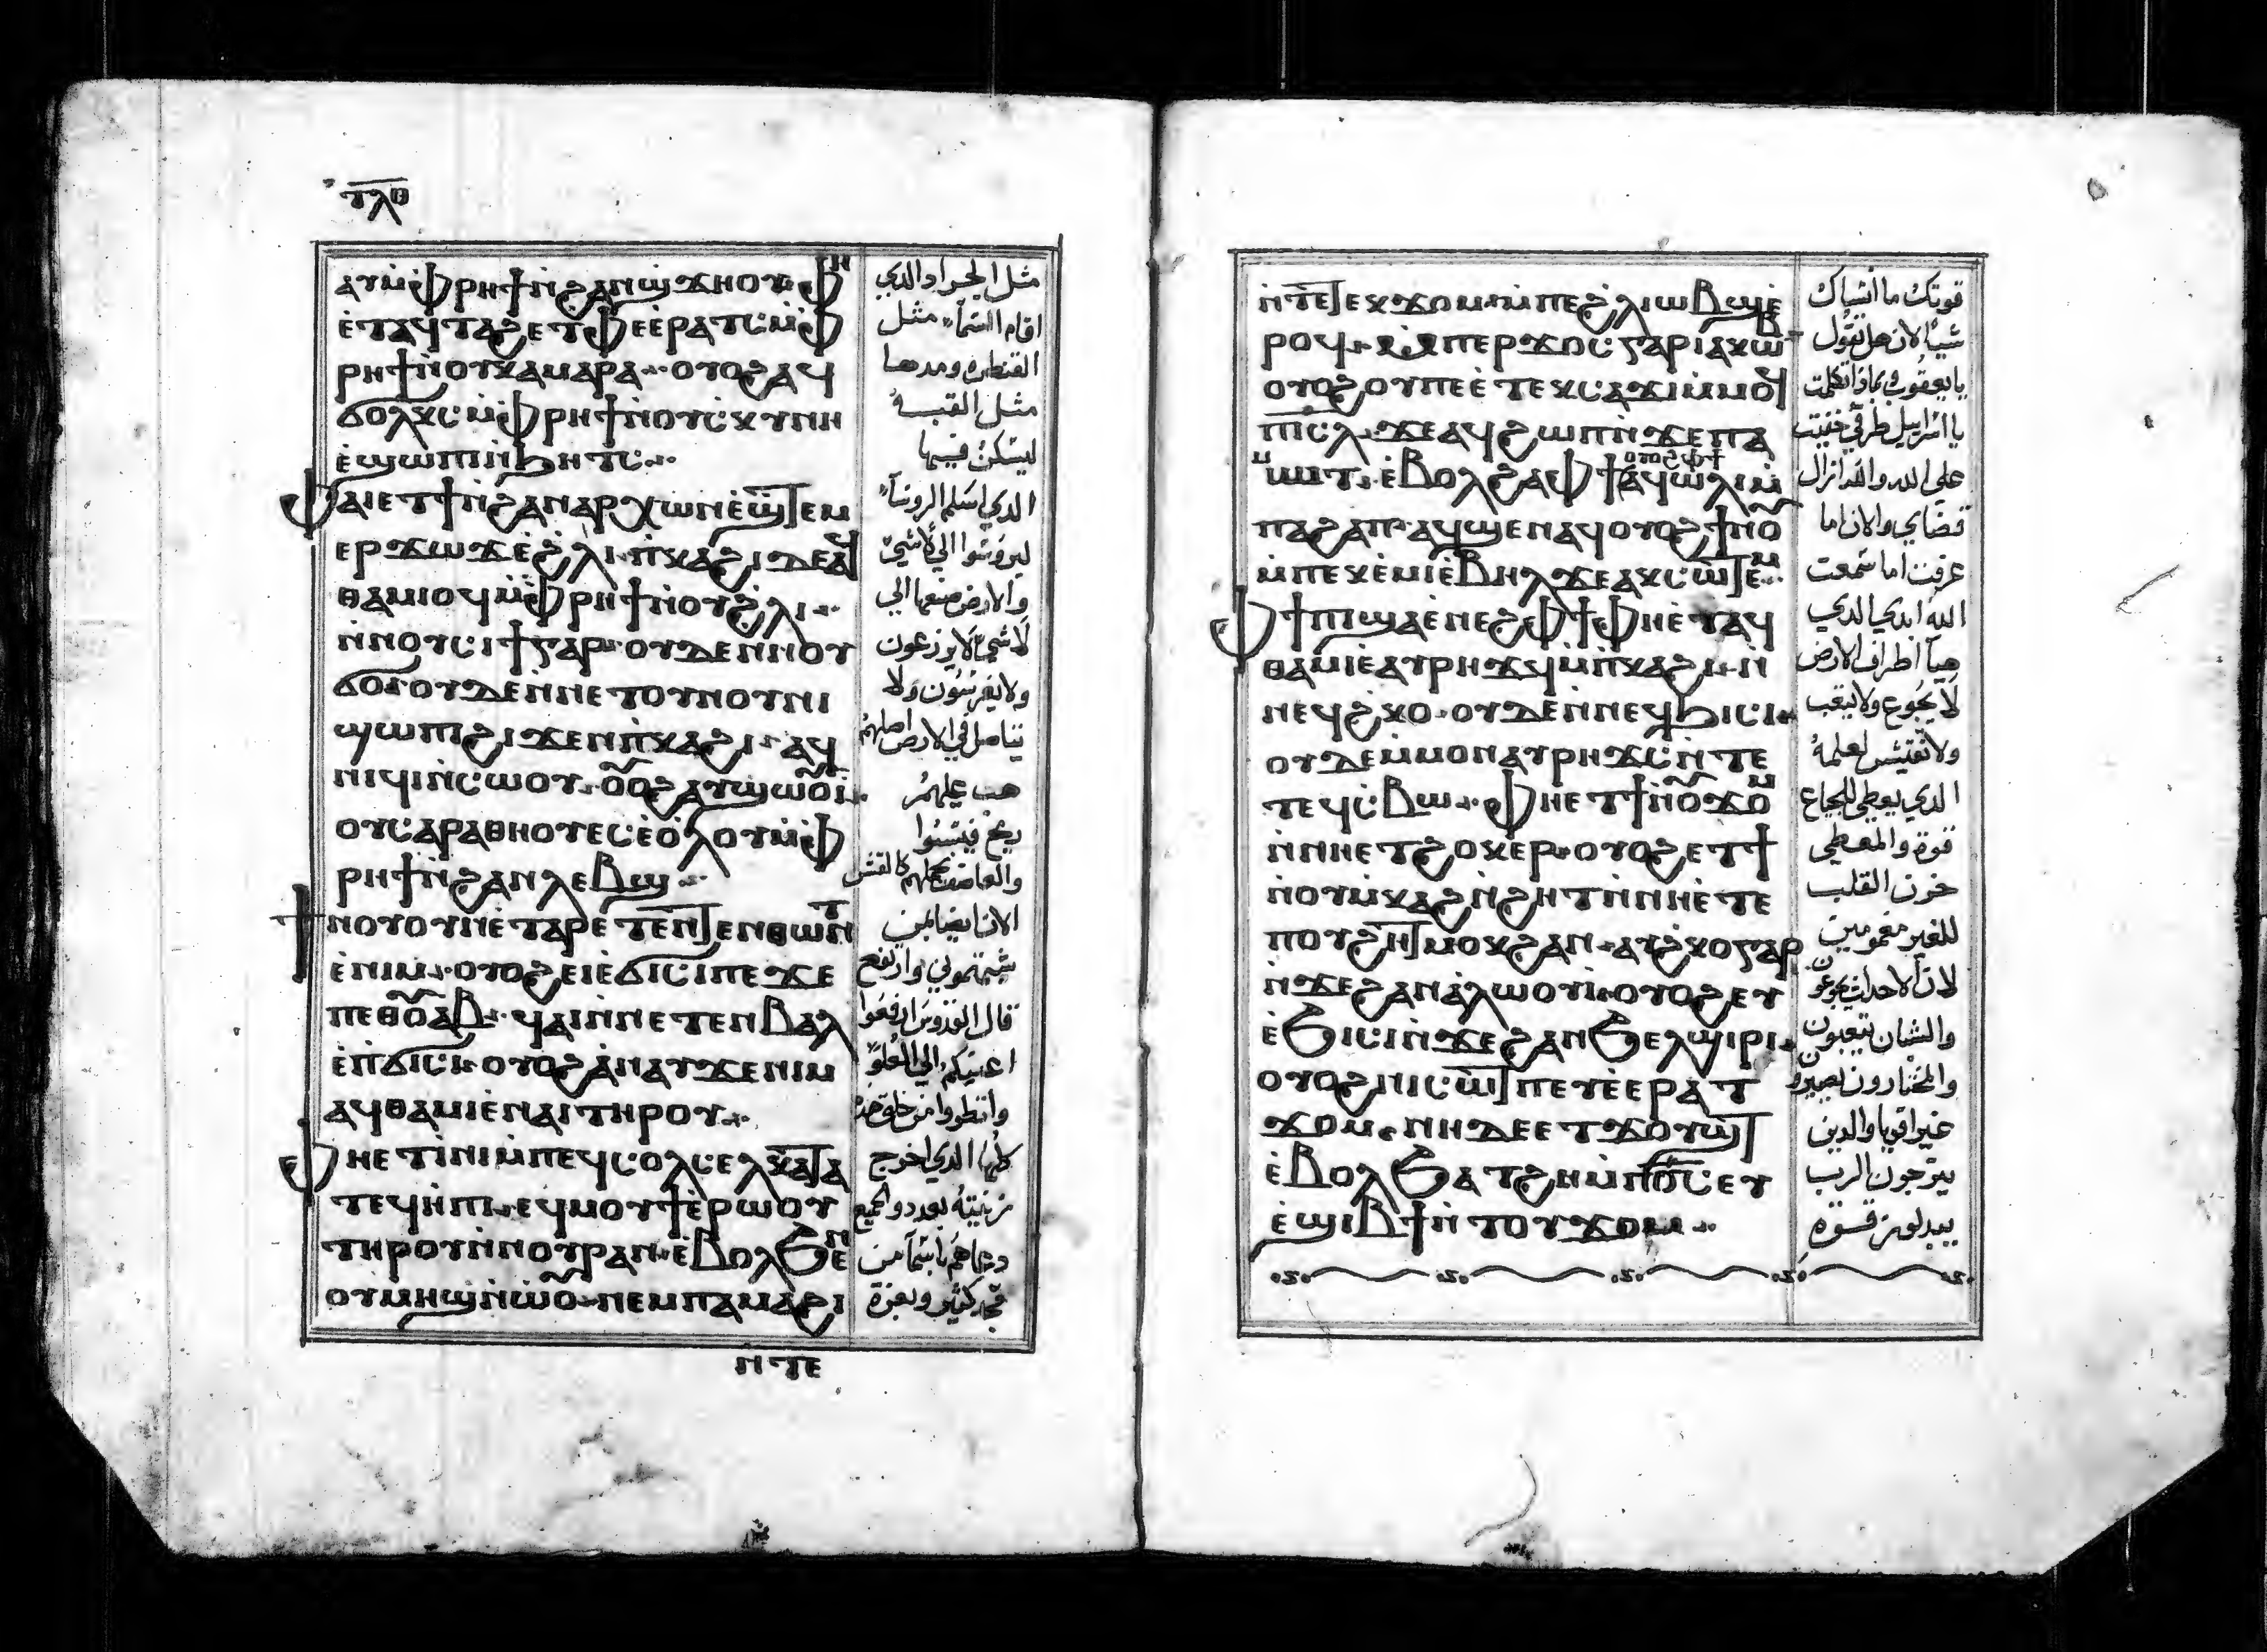 ⲧⲗⲑ
ⲁⲩⲙ̀ⲫⲣⲏϯⲛ̀ϩⲁⲛϣϫⲏⲟⲩ·ⲫⲏ
ⲉ̀ⲧⲁϥⲧⲁϩⲉⲧⲫⲉⲉ̀ⲣⲁⲧⲥⲙ̀ⲫ
ⲣⲏϯⲛ̀ⲟⲩⲭⲁⲙⲁⲣⲁ·ⲟⲩⲟϩⲁϥ
ϭⲟⲗⲕⲥⲙ̀ⲫⲣⲏϯⲛ̀ⲟⲩⲥⲕⲩⲛⲏ
ⲉ̀ϣⲱⲡⲓⲛ̀ϧⲏⲧⲥ
ⲫⲁⲓⲉⲧϯⲛ̀ϩⲁⲛⲁⲣⲭⲱⲛⲉ̀ϣⲧⲉⲙ
ⲉⲣϫⲱϫⲉ̀ϩ̀ⲗⲓ·ⲡ̀ⲕⲁϩⲓⲇⲉⲁϥ
ⲑⲁⲙⲓⲟϥⲙ̀ⲫⲣⲏϯⲛ̀ⲟⲩϩ̀ⲗⲓ
ⲛ̀ⲛⲟⲩⲥⲓϯⲅⲁⲣ·ⲟⲩⲇⲉⲛ̀ⲛⲟⲩ
ϭⲟ·ⲟⲩⲇⲉⲛ̀ⲛⲉⲧⲟⲩⲛⲟⲩⲛⲓ
ϣⲱⲡϩⲓϫⲉⲛⲡ̀ⲕⲁϩⲓ·ⲁϥ
ⲛⲓϥⲓⲛ̀ⲥⲱⲟⲩ·ⲟ̅ⲟϩⲁⲩϣⲱⲟ̅ⲓ
ⲟⲩⲥⲁⲣⲁⲑⲏⲟⲩⲉⲥⲉ̀ⲟ̀ⲗⲟⲩⲙ̀ⲫ
ⲣⲏϯⲛ̀ϩⲁⲛⲗⲉⲃϣ
ϯⲛⲟⲩⲟⲩⲛⲉ̀ⲧⲁⲣⲉⲧⲉⲛⲧⲉⲛⲑⲱⲛⲧ
ⲉ̀ⲛⲓⲙ·ⲟⲩⲟϩⲉⲓⲉ̀ϭⲓⲥⲓⲡⲉϫⲉ
ⲡⲉⲑⲟ̅ⲁⲃ·ϥⲁⲓⲛ̀ⲛⲉⲧⲉⲛⲃⲁⲗ
ⲉ̀ⲡ̀ϭⲓⲥⲓ·ⲟⲩⲟϩⲁ̀ⲛⲁⲩϫⲉⲛⲓⲙ
ⲁϥⲑⲁⲙⲓⲉ̀ⲛⲁⲓⲧⲏⲣⲟⲩ
ⲫⲏⲉⲧⲓ̀ⲛⲓⲙ̀ⲡⲉϥⲥⲟⲗⲥⲉⲗⲕⲁⲧⲁ
ⲧⲉϥⲏ̀ⲡⲓ·ⲉϥⲙⲟⲩϯⲉ̀ⲣⲱⲟⲩ
ⲧⲏⲣⲟⲩⲛ̀ⲛⲟⲩⲣⲁⲛ·ⲉ̀ⲃⲟⲗϧⲉⲛ
ⲟⲩⲙⲏϣⲛ̀ⲱ̀ⲟ̅·ⲛⲉⲙⲡⲁⲙⲁϩⲓ
ⲛⲧⲉ
مثل الجراد الدي
اقام السمآ مثل
القنطره ومدها
مثل القبه
ليسكن فيها
الدي اسلم الروسآ
ليروسوا الي لاشي
والارض صنعها الي
لاشي لا يزرعون
ولا يغرسون ولا
يتاصل في الارض اصلهم
هب عليهم
ريح فيبسوا
والعاصف تحملهم كالقش
الان ايضا لمن
شبهتموني وارتفع
قال القدوس ارفعوا
اعينكم الي العلو
وانظروا من خلق هده
كلها الدي اخرج
زينته بعدد والجميع
دعاهم باسمآ من
مجد كثير وبعزة
ⲛ̀ⲧⲉⲧⲉⲕϫⲟⲙⲙ̀ⲡⲉϩ̀ⲗⲓⲱⲃϣⲉ̀
ⲣⲟϥ·ⲙ̀ⲡⲉⲣϫⲟⲥⲅⲁⲣⲓⲁⲕⲱⲃ
ⲟⲩⲟϩⲟⲩⲡⲉⲉ̀ⲧⲉⲕⲥⲁϫⲓⲙ̀ⲙⲟϥ
ⲡⲓⲥⲗ·ϫⲉⲁϥϩⲱⲡⲛ̀ϫⲉⲡⲁ
ⲙⲱⲓⲧ·ⲉ̀ⲃⲟⲗϩⲁⲫϯ ⲟⲩⲟϩⲫϯ ⲁϥⲱ̀ⲗⲓⲙ̀
ⲡⲁϩⲁⲡ·ⲁϥϣⲉⲛⲁϥⲟⲩⲟϩϯⲛⲟ̅
ⲙ̀ⲡⲉⲕⲉ̀ⲙⲓⲉ̀ⲃⲏⲗϫⲉⲁⲕⲥⲱⲧⲉⲙ
ⲫϯⲡⲓϣⲁⲉ̀ⲛⲉϩⲫϯⲫⲏⲉ̀ⲧⲁϥ
ⲑⲁⲙⲓⲉ̀ⲁⲩⲣⲏϫϥⲙ̀ⲡ̀ⲕⲁϩⲓ·ⲛ̀
ⲛⲉϥϩ̀ⲕⲟ·ⲟⲩⲇⲉⲛ̀ⲛⲉϥϧⲓⲥⲓ
ⲟⲩⲇⲉⲙ̀ⲙⲟⲛⲁⲩⲣⲏϫⲥⲛ̀ⲧⲉ
ⲧⲉϥⲥ̀ⲃⲱ·ⲫⲏⲉⲧϯⲛ̀ⲟ̅ϫⲟⲙ
ⲛ̀ⲛⲏⲉⲧϩⲟⲕⲉⲣ·ⲟⲩⲟϩⲉⲧϯ
ⲛ̀ⲟⲩⲙ̀ⲕⲁϩⲛ̀ϩⲏⲧⲛ̀ⲛⲏⲉ̀ⲧⲉ
ⲡⲟⲩϩⲏⲧⲙⲟⲕϩⲁⲛ·ⲁⲩϩ̀ⲕⲟⲅⲁⲣ
ⲛ̀ϫⲉϩⲁⲛⲁ̀ⲗⲱⲟⲩⲓ̀·ⲟⲩⲟϩⲉⲩ
ⲉ̀ϧⲓⲥⲓⲛ̀ϫⲉϩⲁⲛϧⲉⲗϣⲓⲣⲓ
ⲟⲩⲟϩⲛⲓⲥⲱⲧⲡⲉⲩⲉ̀ⲉⲣⲁⲧ
ϫⲟⲙ·ⲛⲏⲇⲉⲉⲧϫⲟⲩϣⲧ
ⲉ̀ⲃⲟⲗϧⲁⲧϩⲏⲙ̀ⲡ̅ⲟ̅ⲥ̅ⲉⲩ
ⲉ̀ϣⲓⲃϯⲛ̀ⲧⲟⲩϫⲟⲙ
قوتك ما انساك
شيا لان هل تقول
يا يعقوب وبماذا تكلمت
يا اسراييل طرقي خفيت
على الله والله ازال
قضاي والان اما
عرفت اما سمعت
الله ابدي الدي
هيآ اطراف الارض
لا يجوع ولا يتعب
ولا تفتيش لعلمه
الدي يعطي للجياع
قوة والمعطي
حزن القلب
للغير مغمومين
لان الاحداث يجوعون
والشبان يتعبون
والمختارون يصيرون
غير اقويا والدين
يترجون الرب
يبدلون قوة